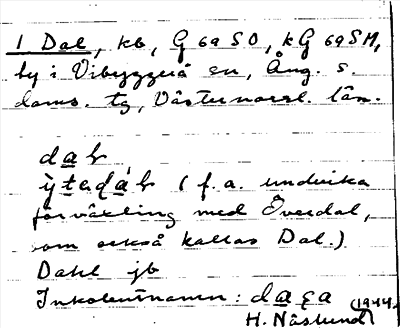 1 Dal, kb, G 69 SO, kG 69 SM,
by i Vibyggerå sn, Ång. s.
doms. tg, Västernorrl. län.
dab
ỳtadáb (f.a. undvika
förväxling med Överdal,
som också kallas Dal.)
Dahl jb
Inkolentnamn: da
(1944.
H. Näslund)